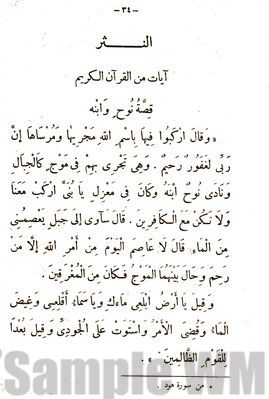 - ٣٤ -
النـــــثر
آيات من القرآن الكريم
قصة نوح وابنه
« وَقَالَ ارْكَبُوا فِيهَا بِاسْمِ اللهِ مَجْرِيهَا وَمُرْسَاهَا إِنَّ
رَبِّى لَغَفُورٌ رَحِيمٌ . وَهِىَ تَجْرِى بِهِمْ فِى مَوْجٍ كَالْجِبَالِ
وَنَادَى نُوحٌ ابْنَهُ وَكَانَ فِى مَعْزِلٍ يَا بُنَىَّ ارْكَبْ مَعَنَا
وَلَا تَكُنْ مَعَ الْكَافِرِينَ . قَالَ سَآوِى إِلَى جَبَلٍ يَعْصِمُنِى
مِنَ الْمَاءِ قَالَ لَا عَاصِمَ الْيَوْمَ مِنْ أَمْرِ اللهِ إِلَّا مَنْ
رَحِمَ وَحَالَ بَيْنَهُمَا الْمَوْجُ فَكَانَ مِنَ الْمُغْرَقِينَ .
وَقِيلَ يَا أَرْضُ ابْلَعِى مَاءَكِ وَيَا سَمَاءُ أَقْلِعِى وَغِيضَ
الْمَاءُ وَقُضِىَ الْأَمْرُ وَاسْتَوَتْ عَلَى الْجُودِىِّ وَقِيلَ بُعْدًا
لِلْقَوْمِ الظَّالِمِينَ * » .
* من سورة هود .
Sample